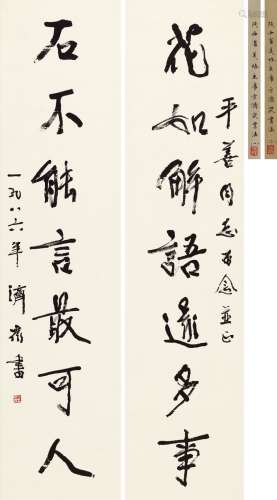 平善同志留念並正
花如解語還多事
石不能言最可人
一九八六年濟書